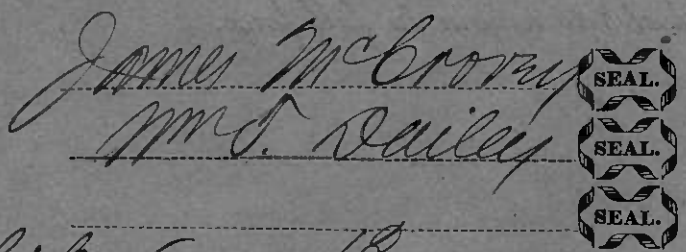 James McCrorey SEAL.
Wm J. Dailey SEAL.
SEAL.